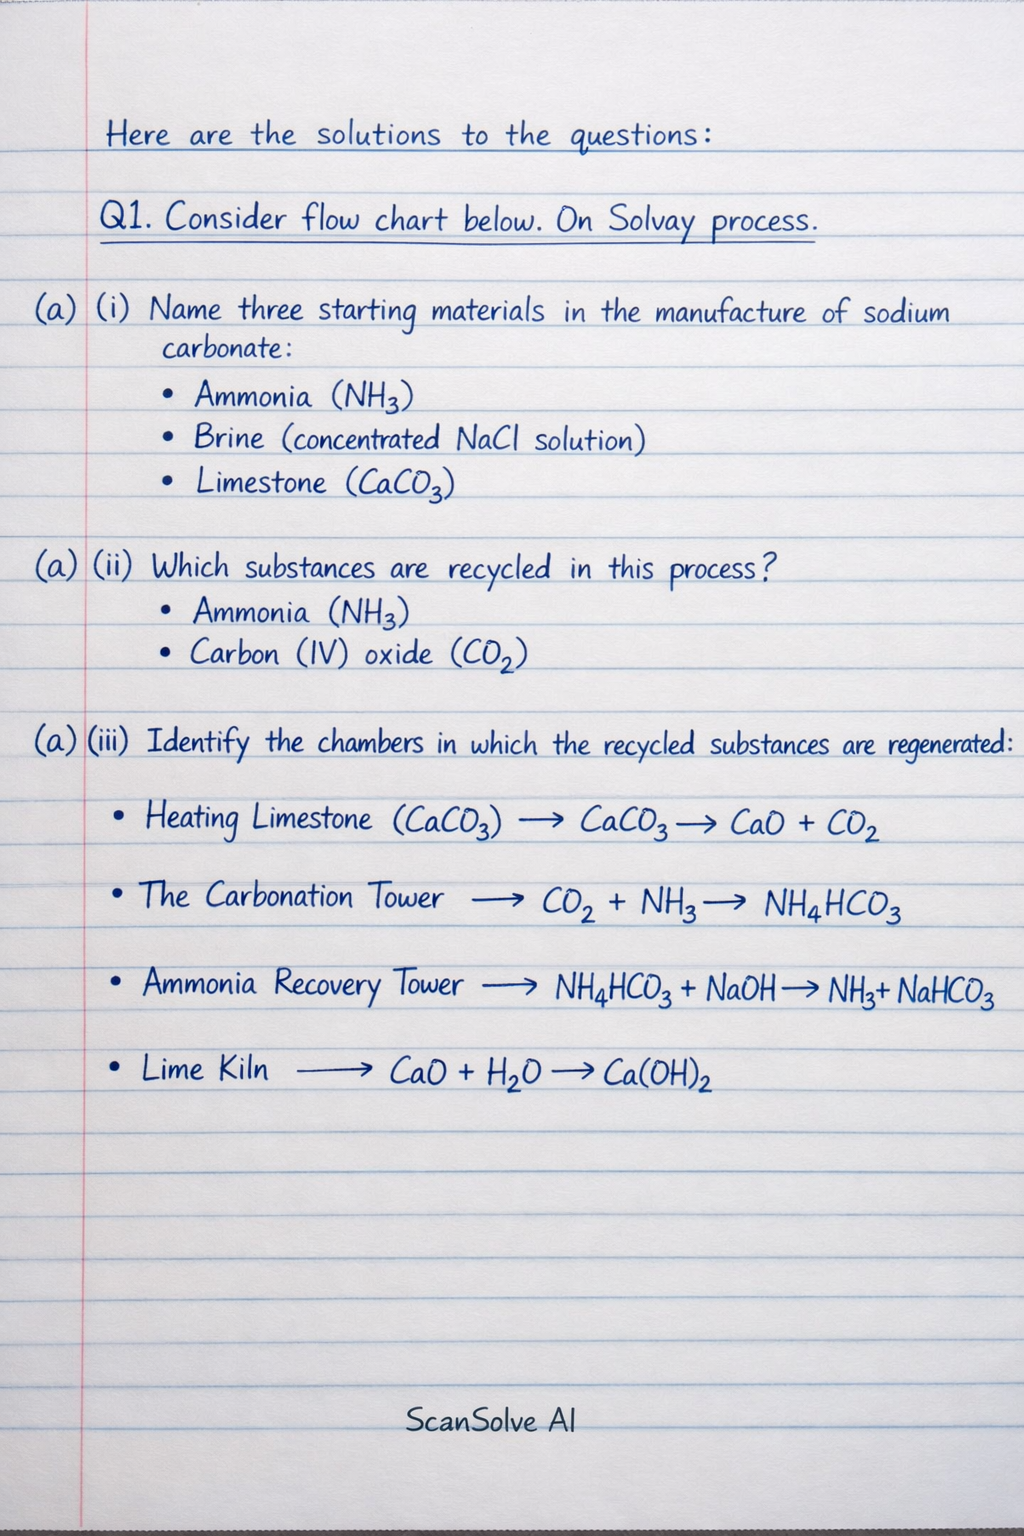 Here are the solutions to the questions:
Q1. Consider flow chart below. On Solvay process.
(a) (i) Name three starting materials in the manufacture of sodium
carbonate:
• Ammonia (NH₃)
• Brine (concentrated NaCl solution)
• Limestone (CaCO₃)
(a) (ii) Which substances are recycled in this process?
• Ammonia (NH₃)
• Carbon (IV) oxide (CO₂)
(a) (iii) Identify the chambers in which the recycled substances are regenerated:
• Heating Limestone (CaCO₃) → CaCO₃ → CaO + CO₂
• The Carbonation Tower → CO₂ + NH₃ → NH₄HCO₃
• Ammonia Recovery Tower → NH₄HCO₃ + NaOH → NH₃ + NaHCO₃
• Lime Kiln → CaO + H₂O → Ca(OH)₂
ScanSolve AI